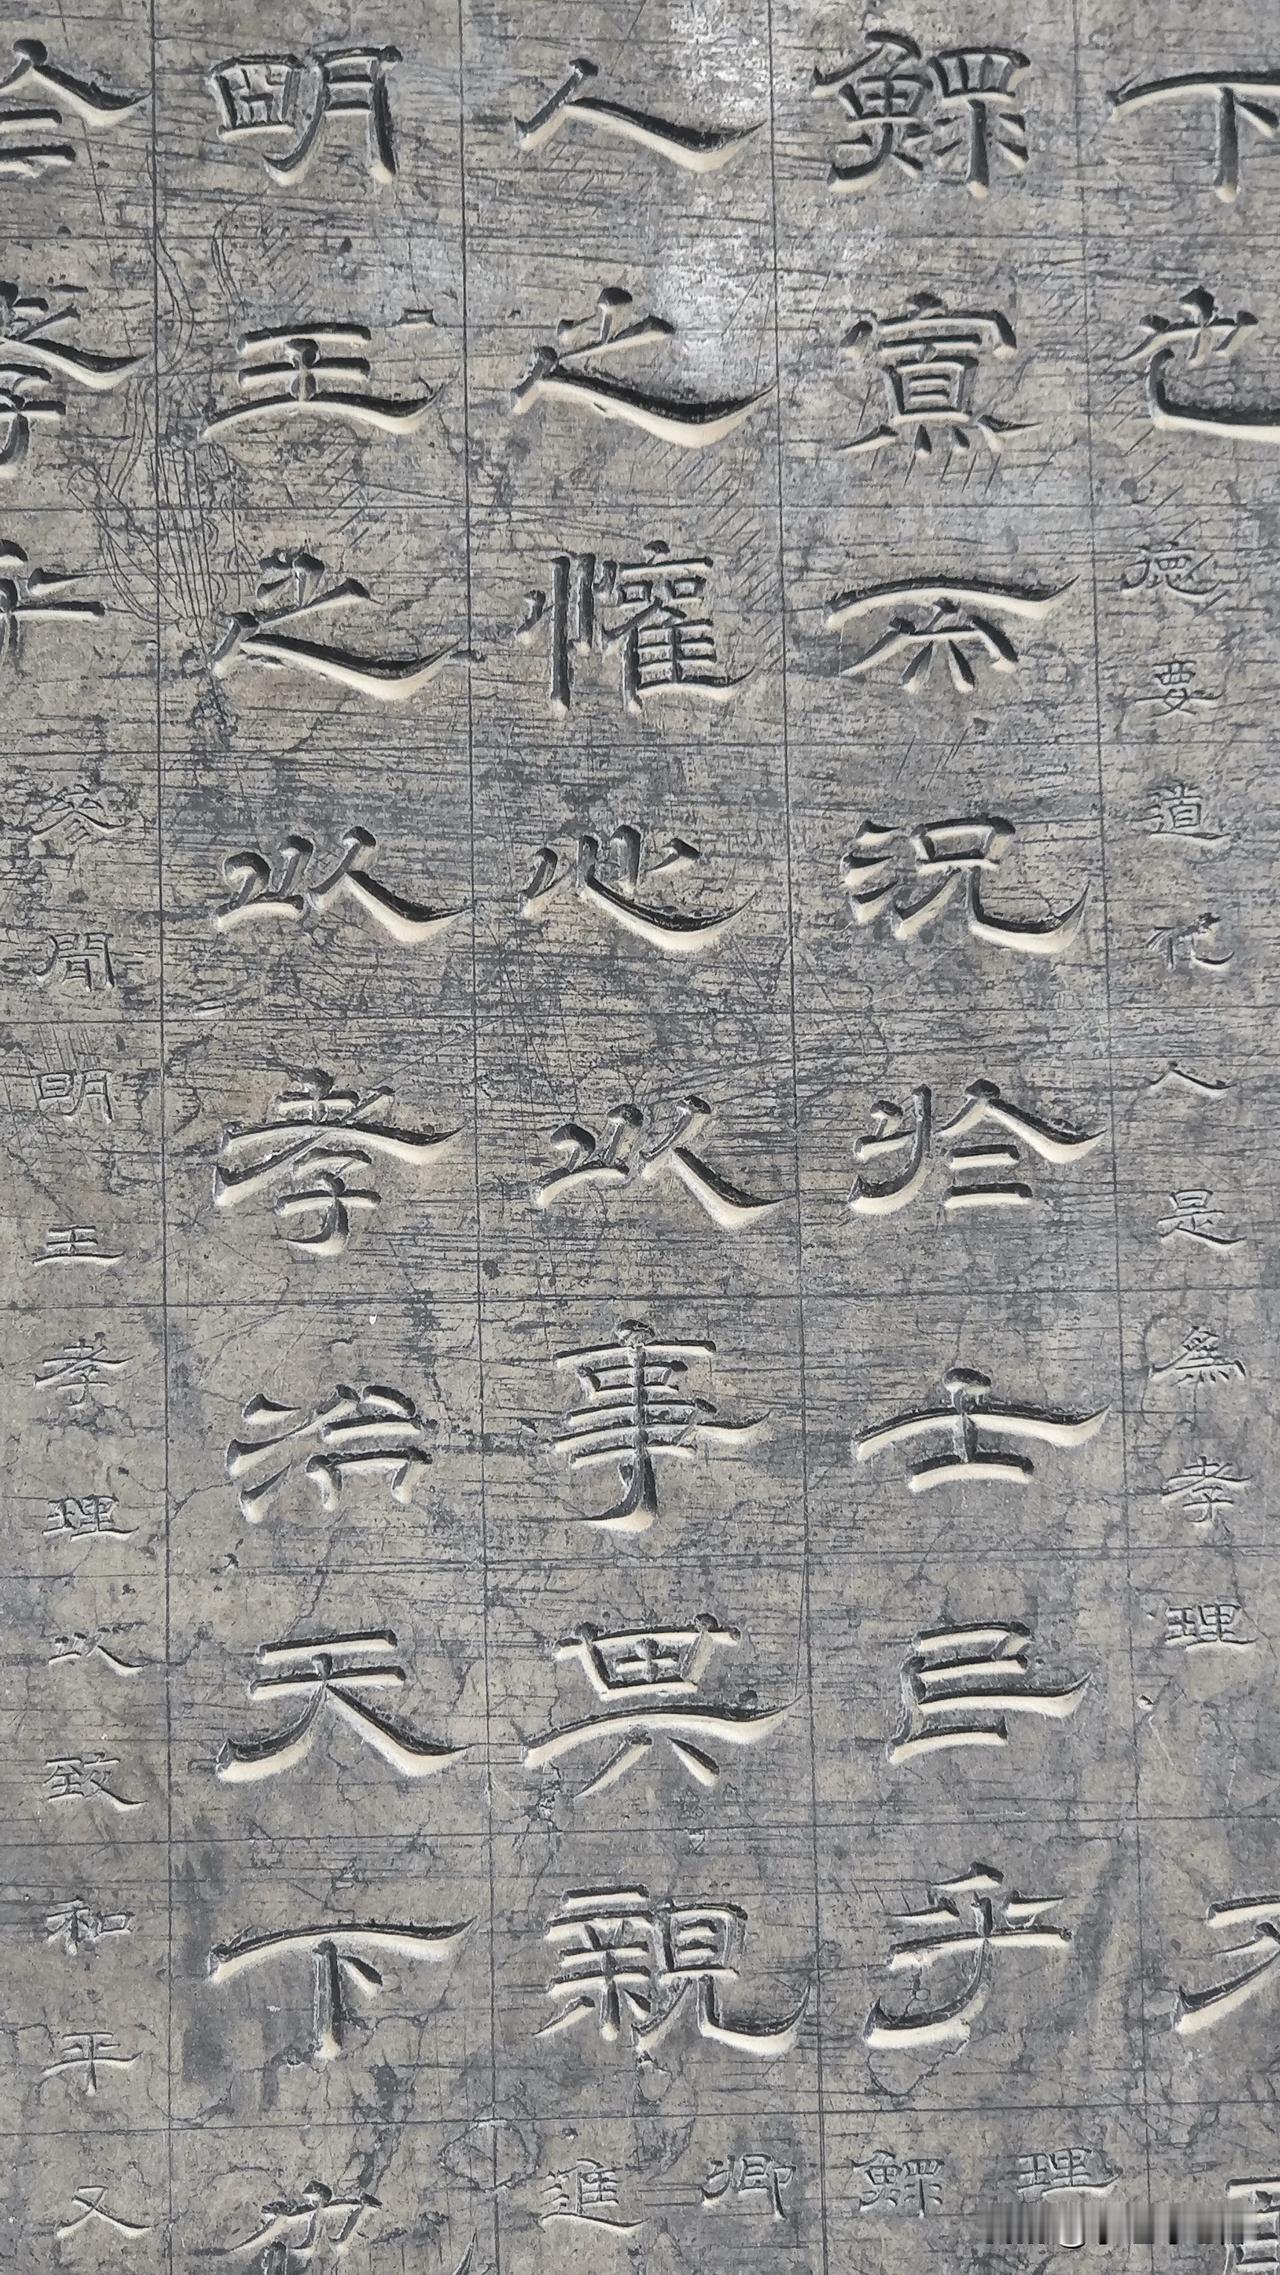 下也德要道化人是為孝理不
鰥寡而況於士民乎理
鰥
人之懽心以事其親卿
進
明王之以孝治天下也
於孝乎參聞明王孝理以致和平又